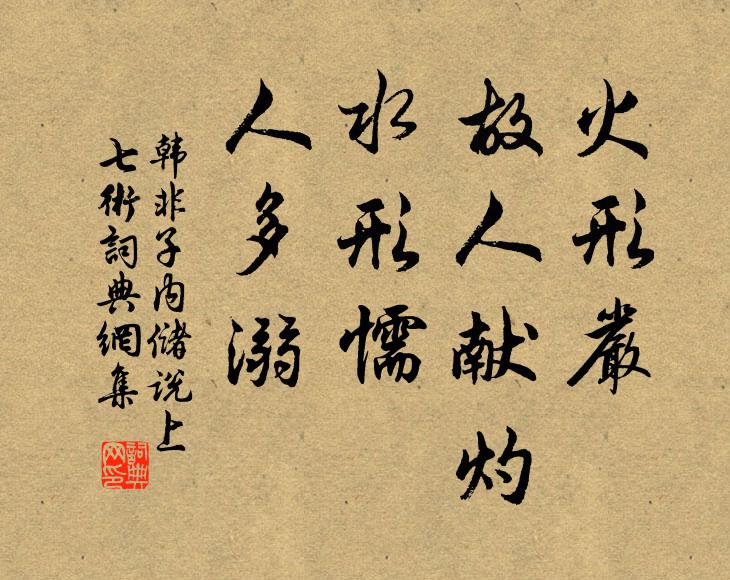 火形嚴
故人献灼
水形懦
人多溺
韩非子内儲说上
七術詞典網集
詞典
网印